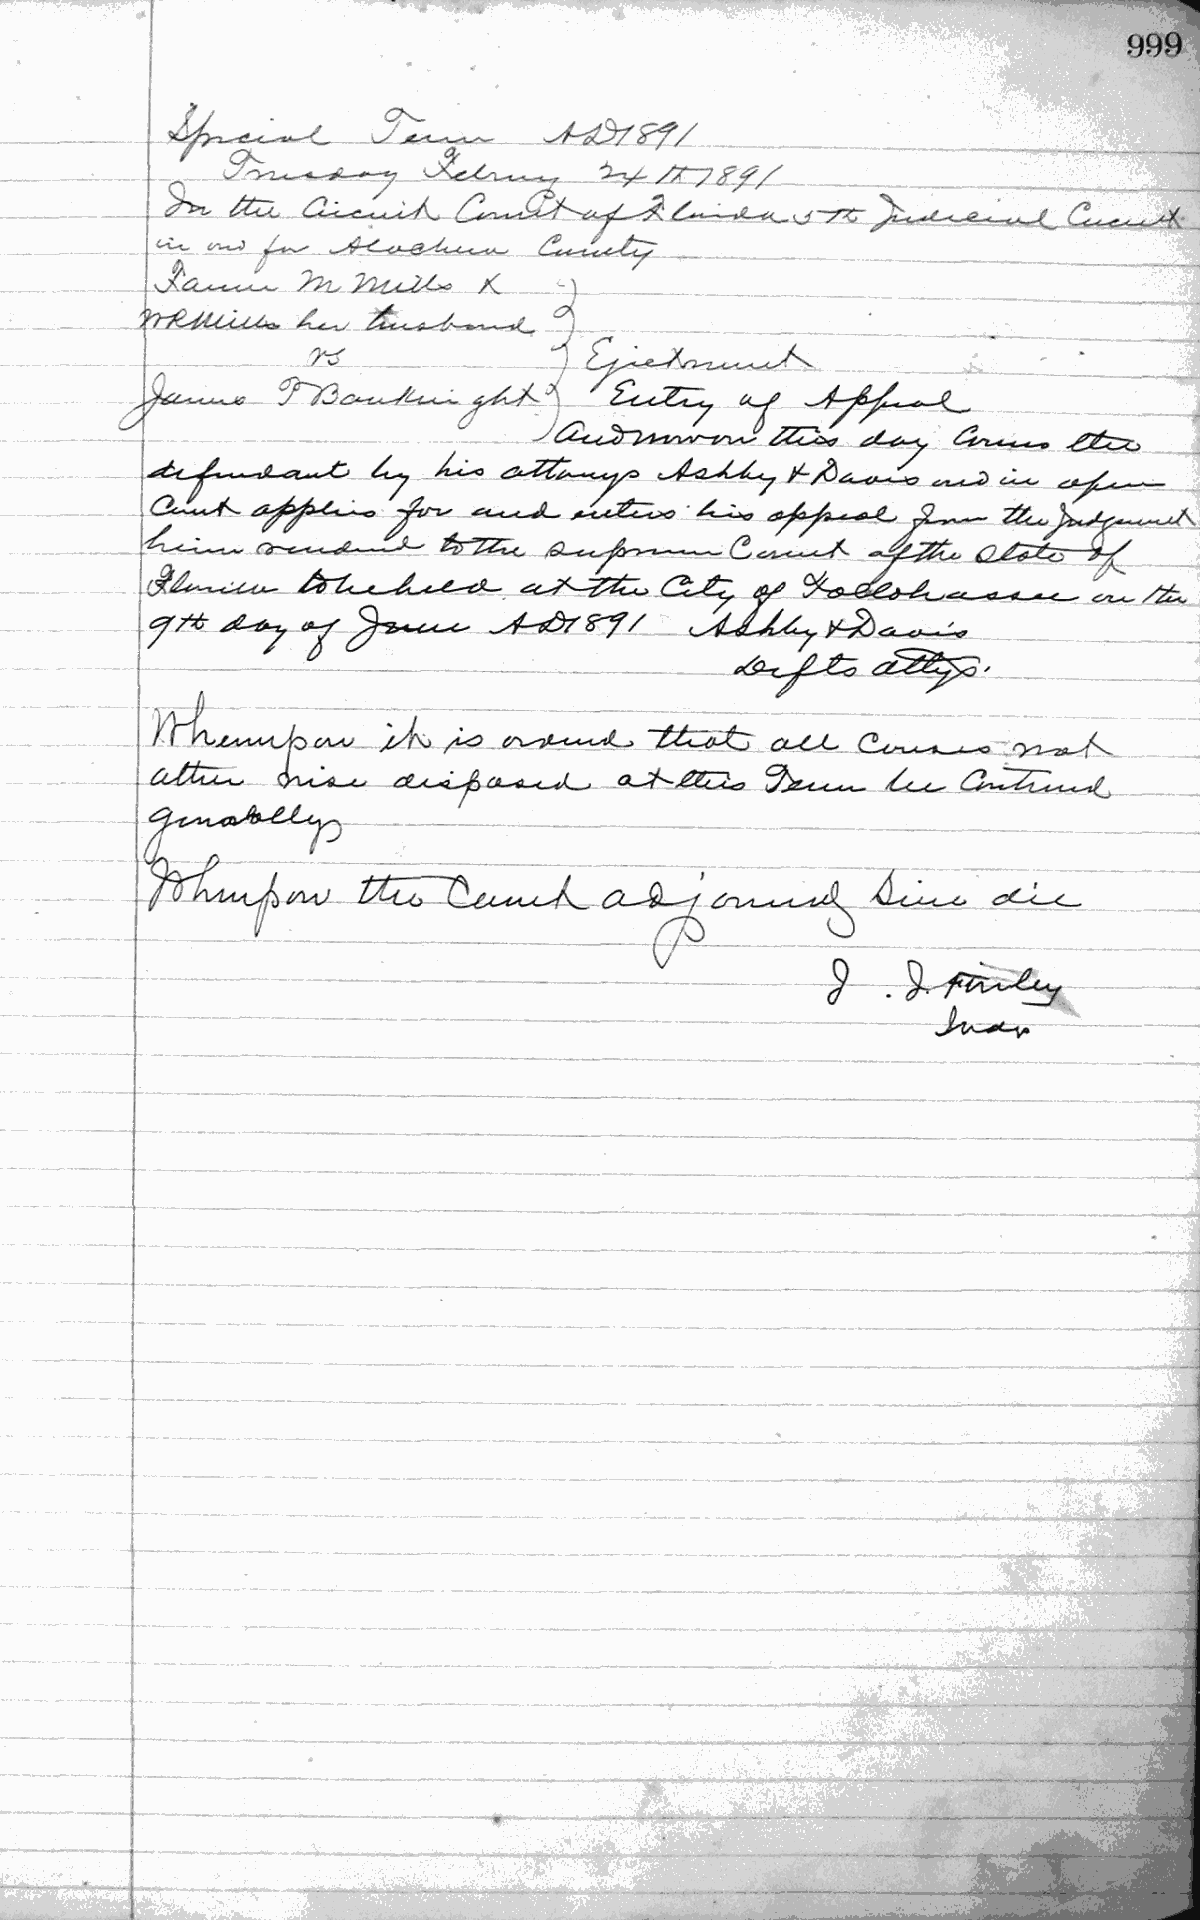 999
Special Term AD 1891
Tuesday Februy 24th 1891
In the Circuit Court of Florida 5th Judicial Circuit
in and for Alachua County
Fannie M Mills &
W R Mills her husband
vs
Ejectment
James T Bauknight
Entry of Appeal
And now on this day comes the
defendant by his attornys Ashby & Davis and in open
Court applies for and enters his appeal from the Judgement
herein rendered to the Supreme Court of the State of
Florida to be held at the City of Tallahassee on the
9th day of June AD 1891 Ashby & Davis
Defts attys.
Whereupon it is ordered that all causes not
other wise disposed at this Term be Continued
generally
Whereupon the Court adjourned Sine die
J. J. Finley
Judge